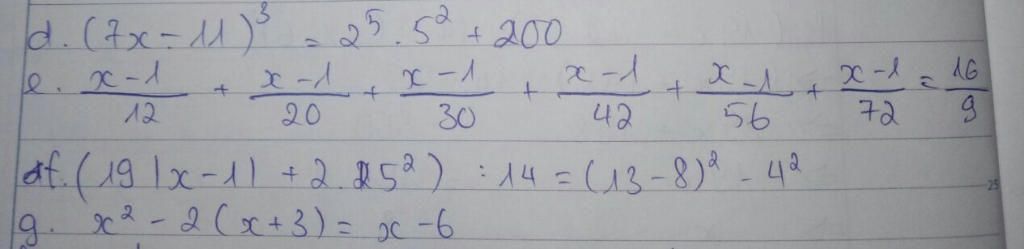 d. (7x - 11)³ = 2⁵ . 5² + 200
e. (x - 1)/12 + (x - 1)/20 + (x - 1)/30 + (x - 1)/42 + (x - 1)/56 + (x - 1)/72 = 16/9
f. (19 |x - 1| + 2 . 5²) : 14 = (13 - 8)² - 4²
g. x² - 2 (x + 3) = x - 6
25